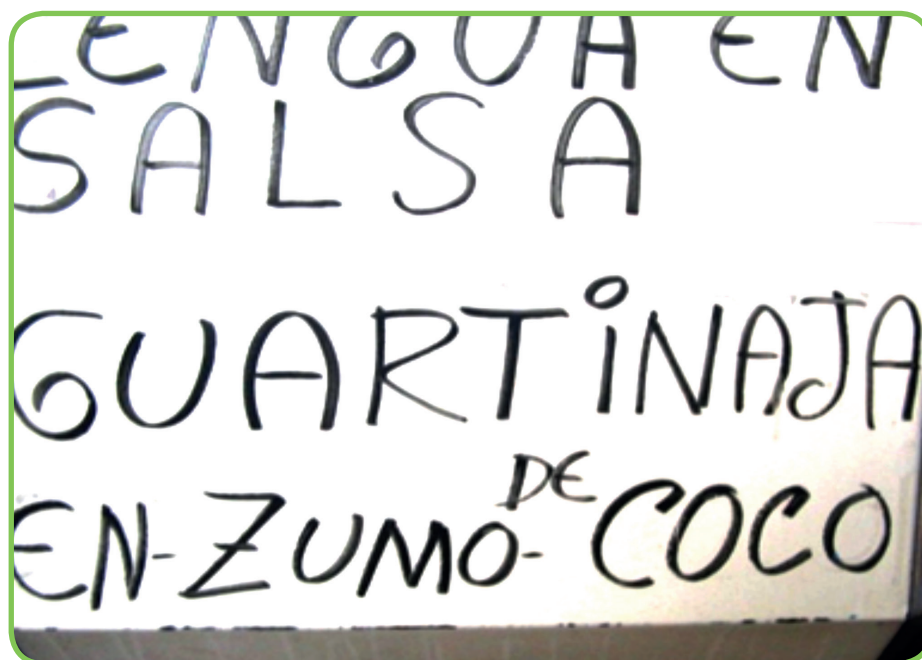 LENGUA EN
SALSA
GUARTiNAJA
EN-ZUMO- DE COCO